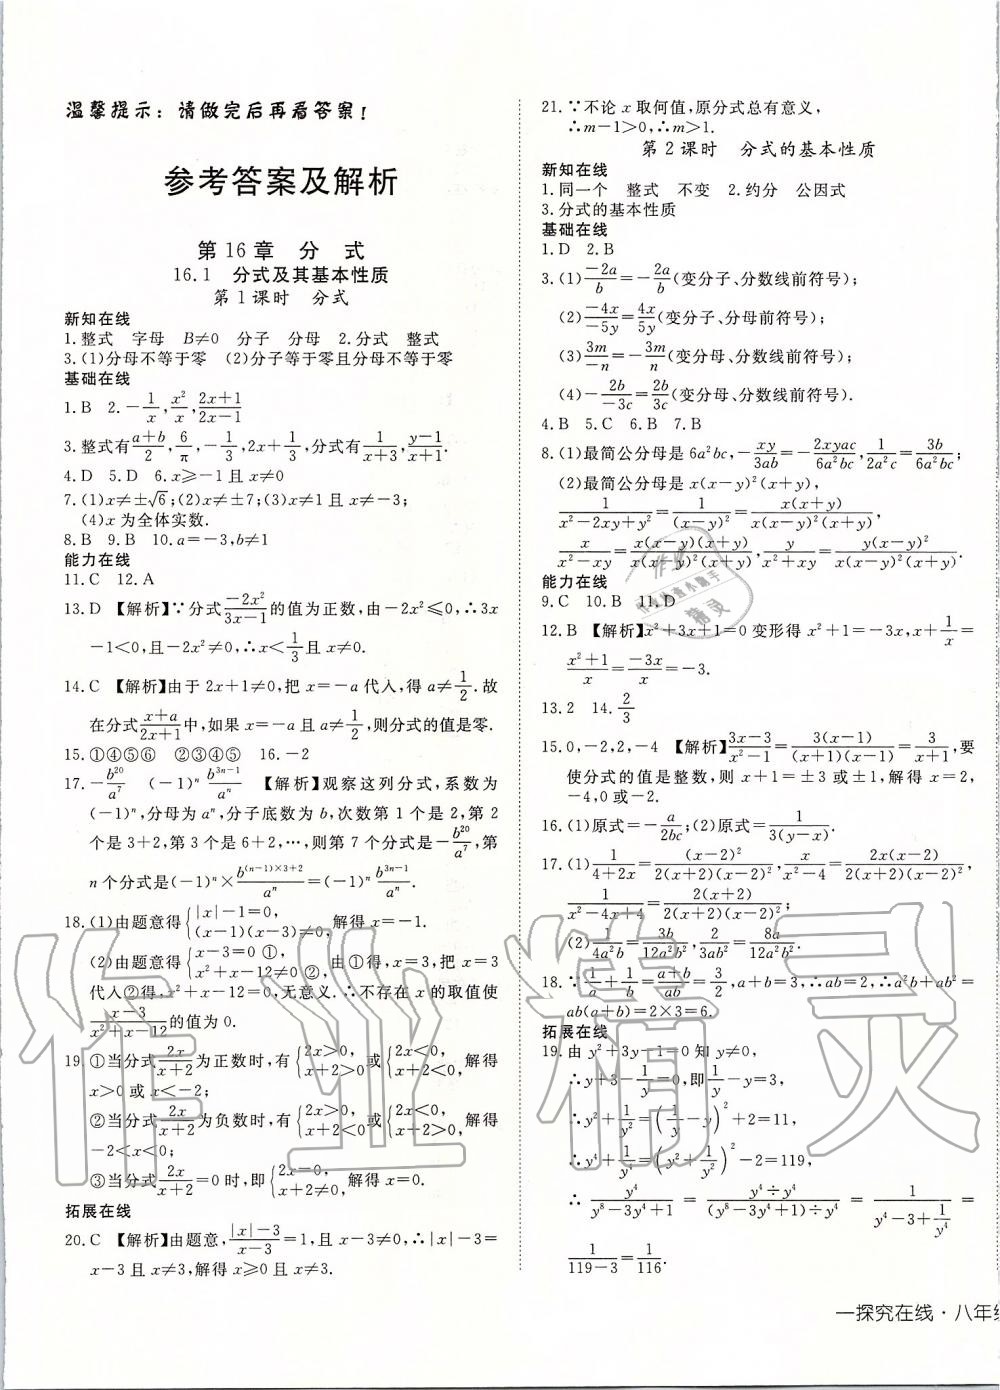 温馨提示：请做完后再看答案！
参考答案及解析
第16章　分　式
16.1　分式及其基本性质
第1课时　分式
新知在线
1.整式　字母　B≠0　分子　分母　2.分式　整式
3.(1)分母不等于零　(2)分子等于零且分母不等于零
基础在线
1.B　2.-1/x, x²/x, (2x+1)/(2x-1)
3.整式有(a+b)/2, 6/π, -1/3, 2x+1/3, 分式有1/(x+3), (y-1)/(x+1).
4.D　5.D　6.x≥-1且x≠0
7.(1)x≠±√6;(2)x≠±7;(3)x≠1且x≠-3;
(4)x为全体实数.
8.B　9.B　10.a=-3,b≠1
能力在线
11.C　12.A
13.D　【解析】∵分式-2x²/(3x-1)的值为正数,由-2x²≤0,∴3x
-1<0,且-2x²≠0,∴x<1/3且x≠0.
14.C　【解析】由于2x+1≠0,把x=-a代入,得a≠1/2.故
在分式(x+a)/(2x+1)中,如果x=-a且a≠1/2,则分式的值是零.
15.①④⑤⑥　②③④⑤　16.-2
17.-b²⁰/a⁷　(-1)ⁿ b³ⁿ⁻¹/aⁿ　【解析】观察这列分式,系数为
(-1)ⁿ,分母为aⁿ,分子底数为b,次数第1个是2,第2
个是3+2,第3个是6+2,…,则第7个分式是-b²⁰/a⁷,第
n个分式是(-1)ⁿ×b⁽ⁿ⁻¹⁾ˣ³⁺²/aⁿ=(-1)ⁿ b³ⁿ⁻¹/aⁿ.
18.(1)由题意得{|x|-1=0, (x-1)(x-3)≠0, 解得x=-1.
(2)由题意得{x-3=0 ①, x²+x-12≠0 ②, 由①得,x=3,把x=3
代入②得,x²+x-12=0,无意义.∴不存在x的取值使
(x-3)/(x²+x-12)的值为0.
19.①当分式2x/(x+2)为正数时,有{2x>0, x+2>0 或{2x<0, x+2<0, 解得
x>0或x<-2;
②当分式2x/(x+2)为负数时,有{2x>0, x+2<0 或{2x<0, x+2>0, 解得
-2<x<0;
③当分式2x/(x+2)=0时,即{2x=0, x+2≠0, 解得:x=0.
拓展在线
20.C　【解析】由题意,(|x|-3)/(x-3)=1,且x-3≠0,∴|x|-3=
x-3且x≠3,解得x≥0且x≠3.
21.∵不论x取何值,原分式总有意义,
∴m-1>0,∴m>1.
第2课时　分式的基本性质
新知在线
1.同一个　整式　不变　2.约分　公因式
3.分式的基本性质
基础在线
1.D　2.B
3.(1)-2a/b=-2a/b(变分子、分数线前符号);
(2)-4x/-5y=4x/5y(变分子、分母前符号);
(3)3m/-n=-3m/n(变分母、分数线前符号);
(4)-2b/-3c=2b/3c(变分母、分数线前符号).
4.B　5.C　6.B　7.B
8.(1)最简公分母是6a²bc,-xy/3ab=-2xyac/6a²bc,1/2a²c=3b/6a²bc;
(2)最简公分母是x(x-y)²(x+y),
1/(x²-2xy+y²)=1/(x-y)²=x(x+y)/x(x-y)²(x+y),
x/(x²-xy)=x(x-y)(x+y)/x(x-y)²(x+y),y/(x²-y²)=xy(x-y)/x(x-y)²(x+y).
能力在线
9.C　10.B　11.D
12.B　【解析】x²+3x+1=0变形得x²+1=-3x,x+1/x=
(x²+1)/x=-3x/x=-3.
13.2　14.2/3
15.0,-2,2,-4　【解析】(3x-3)/(x²-1)=3(x-1)/(x+1)(x-1)=3/(x+1),要
使分式的值是整数,则x+1=±3或±1,解得x=2,
-4,0或-2.
16.(1)原式=-a/2bc;(2)原式=1/3(y-x).
17.(1)1/(4+2x)=(x-2)²/2(x+2)(x-2)²,x/(x²-4)=2x(x-2)/2(x+2)(x-2)²,
1/(x²-4x+4)=2(x+2)/2(x+2)(x-2)²;
(2)1/4a²b=3b/12a²b²,2/3ab²=8a/12a²b².
18.∵1/a+1/b=(a+b)/ab=3/2,a+b=3,∴ab=2,∴a²b+ab²=
ab(a+b)=2×3=6.
拓展在线
19.由y²+3y-1=0知y≠0,
∴y+3-1/y=0,即1/y-y=3,
∴y²+1/y²=(1/y-y)²+2=11,
∴y⁴+1/y⁴=(y²+1/y²)²-2=119,
∴y⁴/(y⁸-3y⁴+1)=(y⁴÷y⁴)/((y⁸-3y⁴+1)÷y⁴)=1/(y⁴-3+1/y⁴)=
1/(119-3)=1/116.
一探究在线·八年级
作业精灵